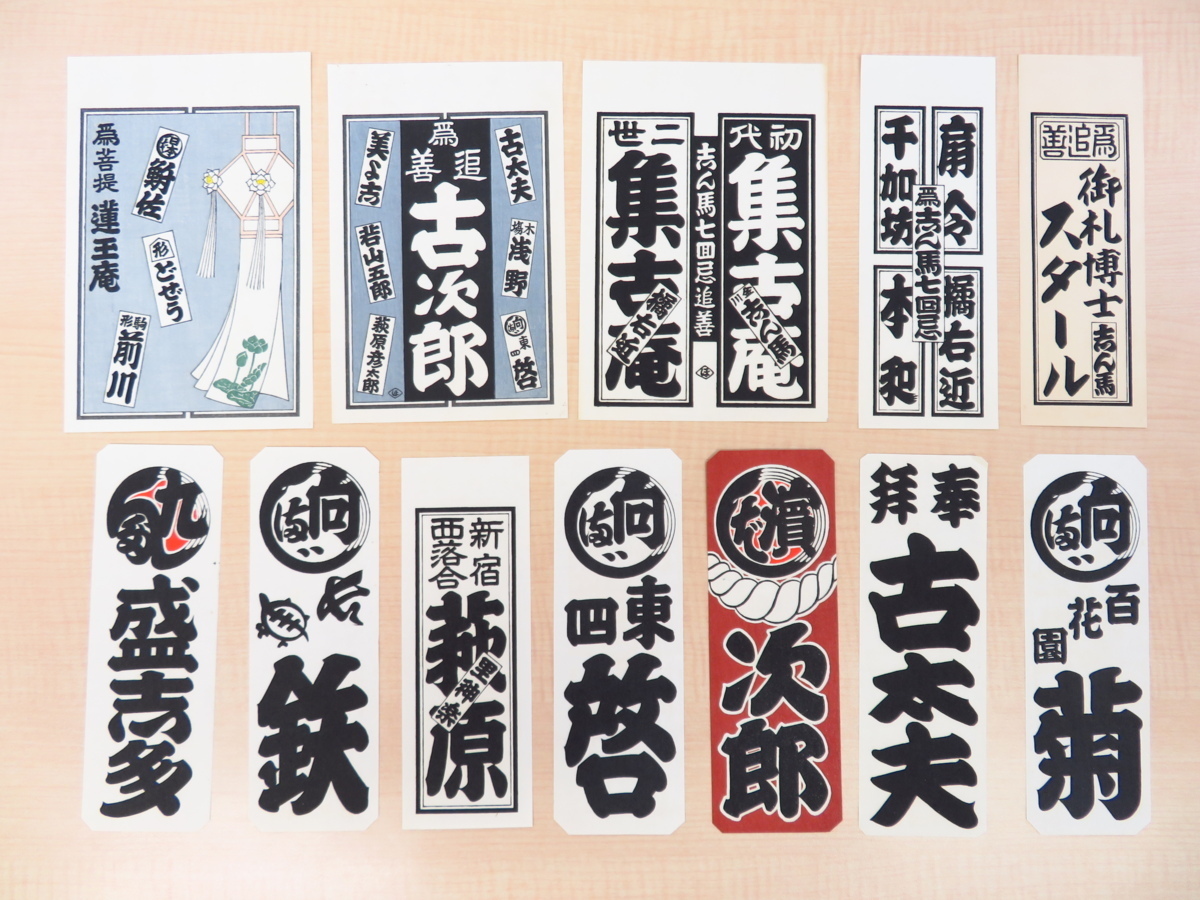 為菩提
蓮玉庵
鮒佐
形
どぜう
駒形
前川
為追善
古次郎
古太夫
木場
浅野
東四
啓
美よ志
若山五郎
萩原彦太郎
ほ
初代
集古庵
志ん馬
志ん馬七回忌追善
ほ
二世
集古庵
扇令
橘右近
為志ん馬七回忌
千加坊
為追善
御札博士
スタール
志ん馬
盛吉多
鉄
新宿
西落合
萩原
里神楽
東四
啓
濱
次郎
奉拝
古太夫
百花園
菊